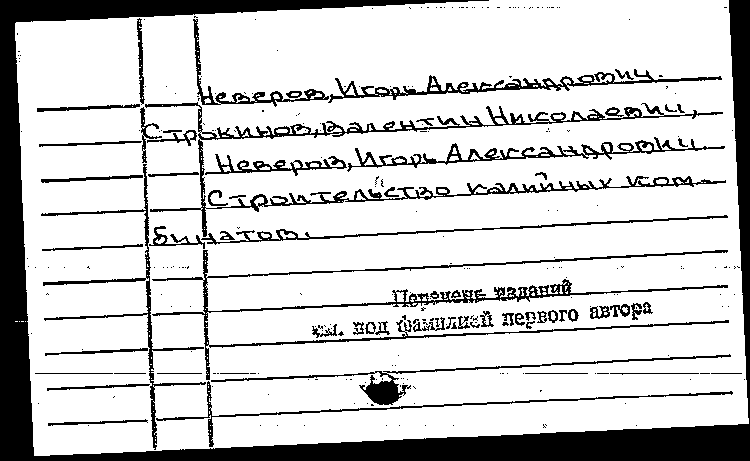 Неверов, Игорь Александрович.
Строкинов, Валентин Николаевич,
Неверов, Игорь Александрович.
Строительство калийных ком-
бинатов.
Перечень изданий
см. под фамилией первого автора